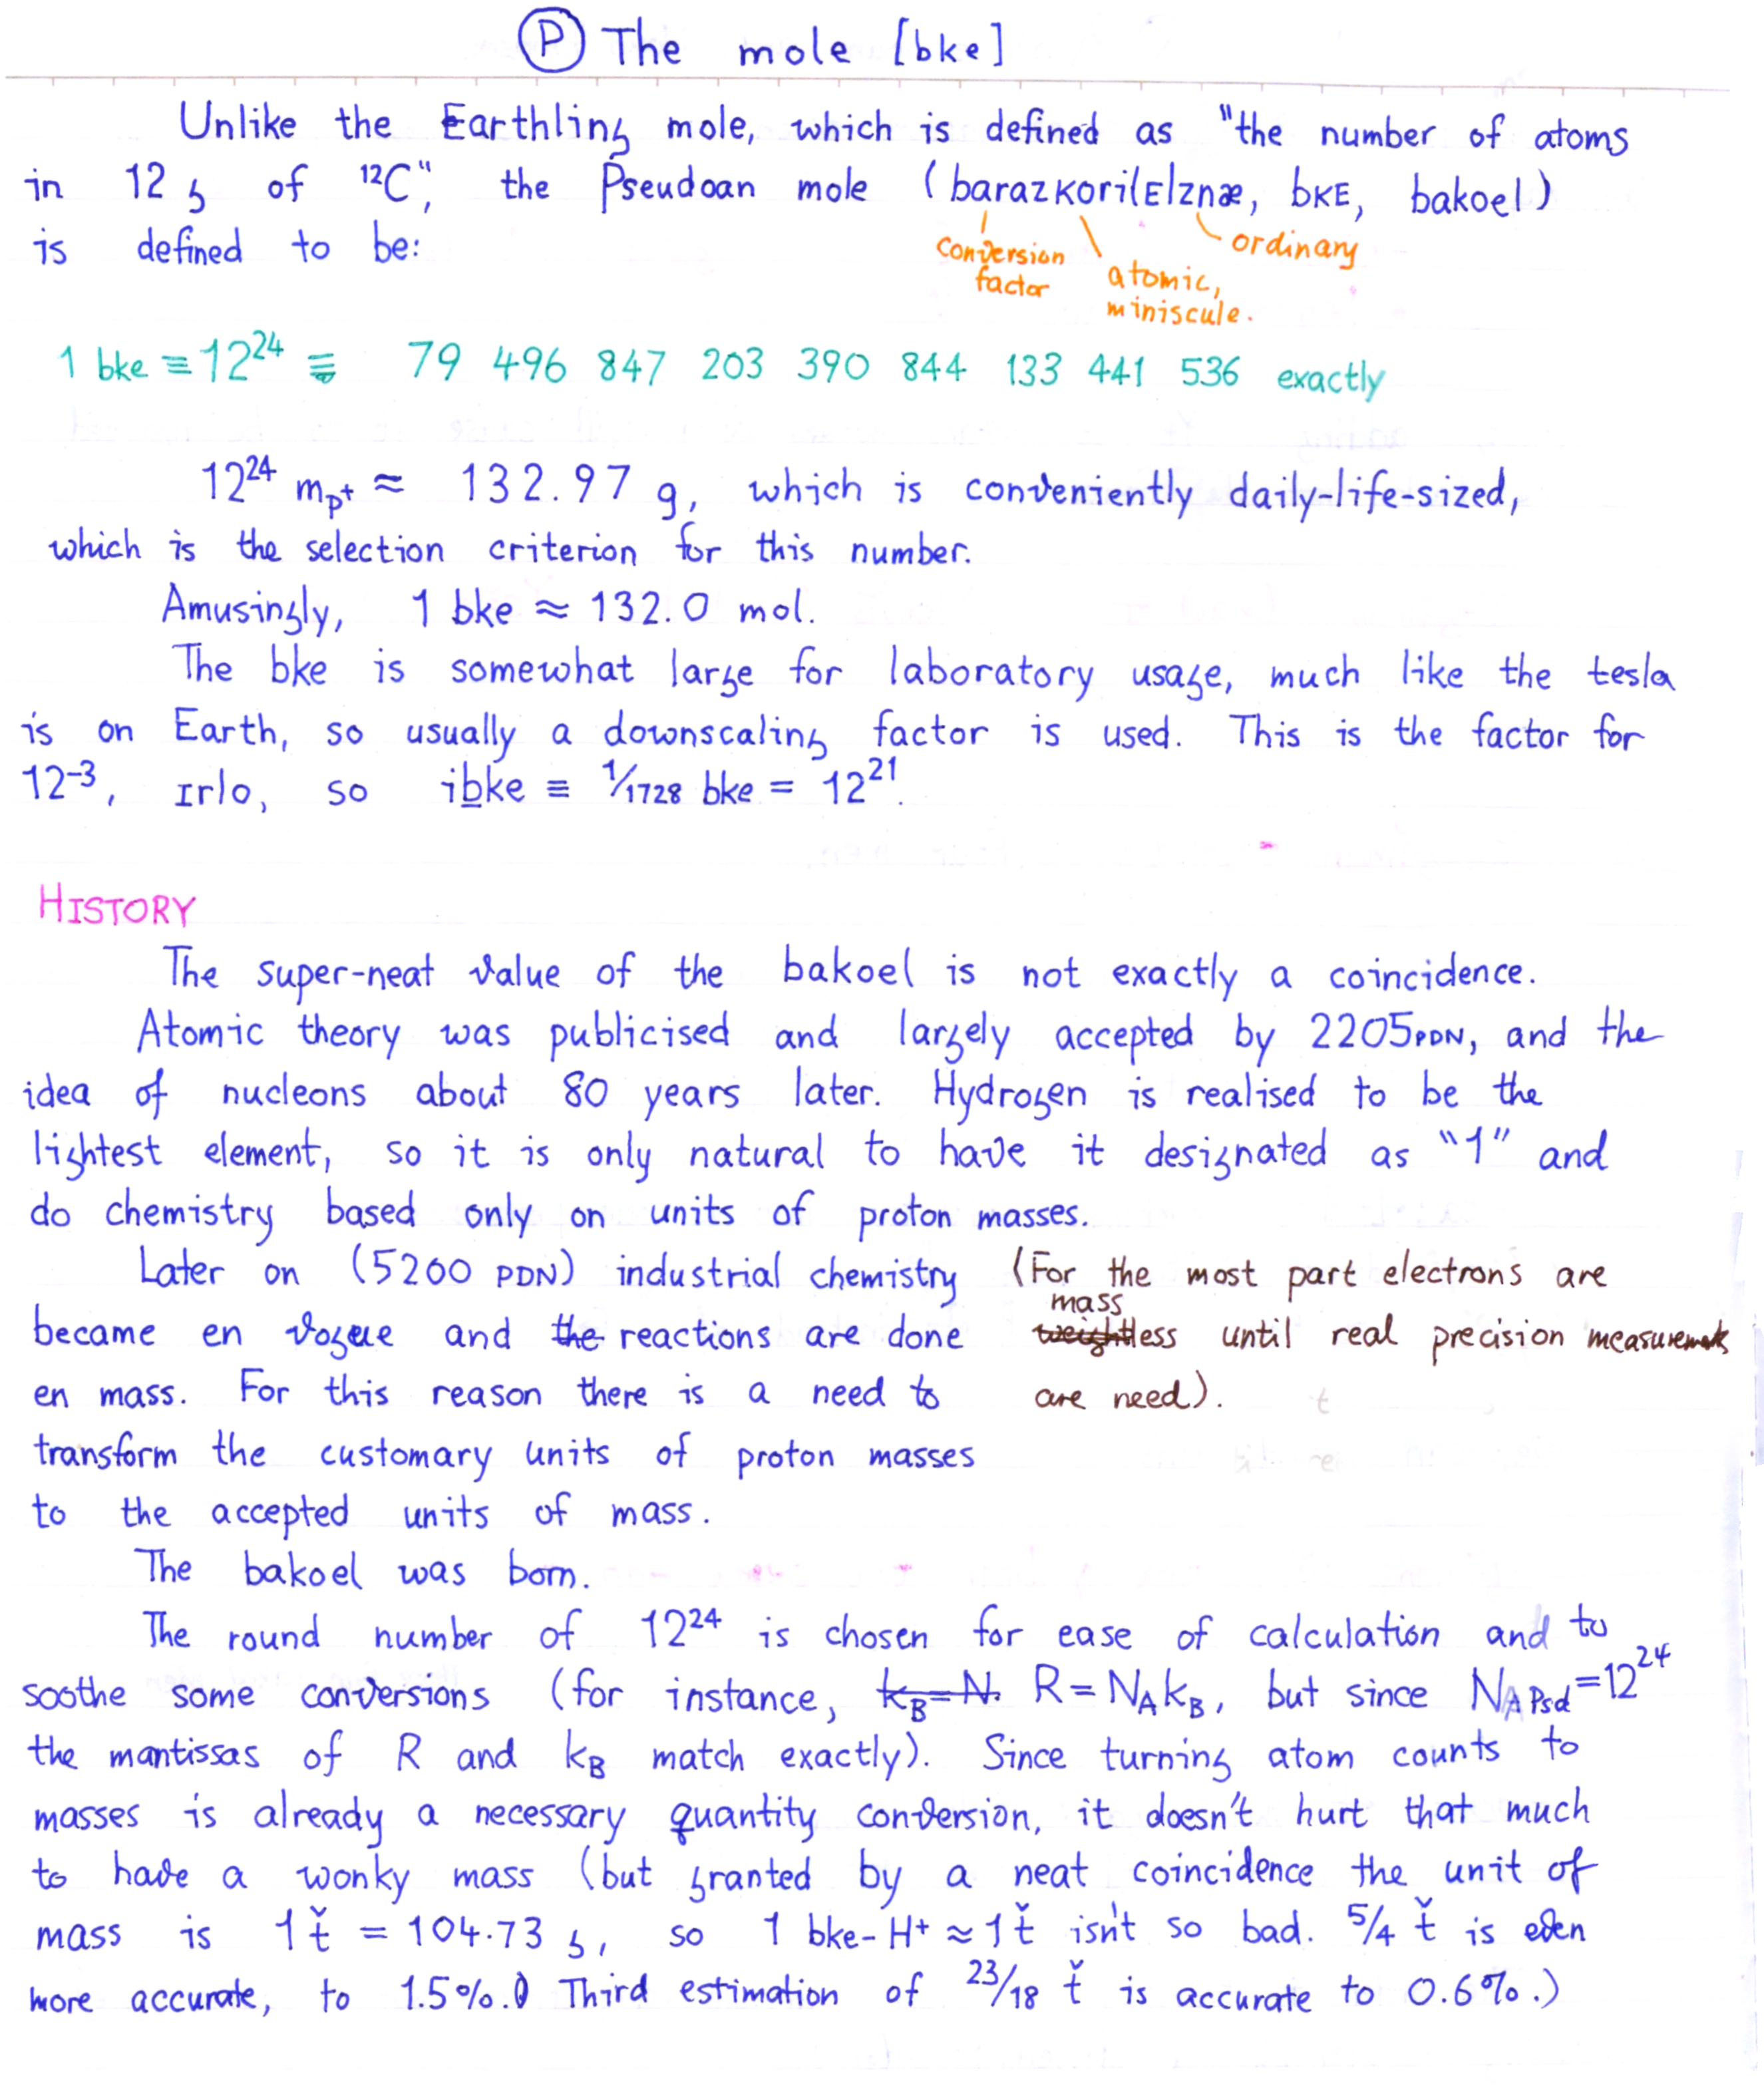 Ⓟ The mole [bke]
Unlike the Earthling mole, which is defined as "the number of atoms
in 12 g of ¹²C", the Pseudoan mole (barazKori(E)znæ, bKE, bakoel)
is defined to be:
conversion factor
atomic, miniscule.
ordinary
1 bke ≡ 12²⁴ ≡ 79 496 847 203 390 844 133 441 536 exactly
12²⁴ mₚ₊ ≈ 132.97 g, which is conveniently daily-life-sized,
which is the selection criterion for this number.
Amusingly, 1 bke ≈ 132.0 mol.
The bke is somewhat large for laboratory usage, much like the tesla
is on Earth, so usually a downscaling factor is used. This is the factor for
12⁻³, ɪrlo, so ibke ≡ 1/1728 bke = 12²¹.
HISTORY
The super-neat value of the bakoel is not exactly a coincidence.
Atomic theory was publicised and largely accepted by 2205PDN, and the
idea of nucleons about 80 years later. Hydrogen is realised to be the
lightest element, so it is only natural to have it designated as "1" and
do chemistry based only on units of proton masses.
Later on (5200 PDN) industrial chemistry
became en vogue and the reactions are done
en mass. For this reason there is a need to
transform the customary units of proton masses
to the accepted units of mass.
(For the most part electrons are
massless until real precision measurements
are need).
The bakoel was born.
The round number of 12²⁴ is chosen for ease of calculation and to
soothe some conversions (for instance, k_B=N. R = N_A k_B, but since N_A Psd = 12²⁴
the mantissas of R and k_B match exactly). Since turning atom counts to
masses is already a necessary quantity conversion, it doesn't hurt that much
to have a wonky mass (but granted by a neat coincidence the unit of
mass is 1 ť = 104.73 g, so 1 bke-H⁺ ≈ 1 ť isn't so bad. 5/4 ť is even
more accurate, to 1.5%. Third estimation of 23/18 ť is accurate to 0.6%.)